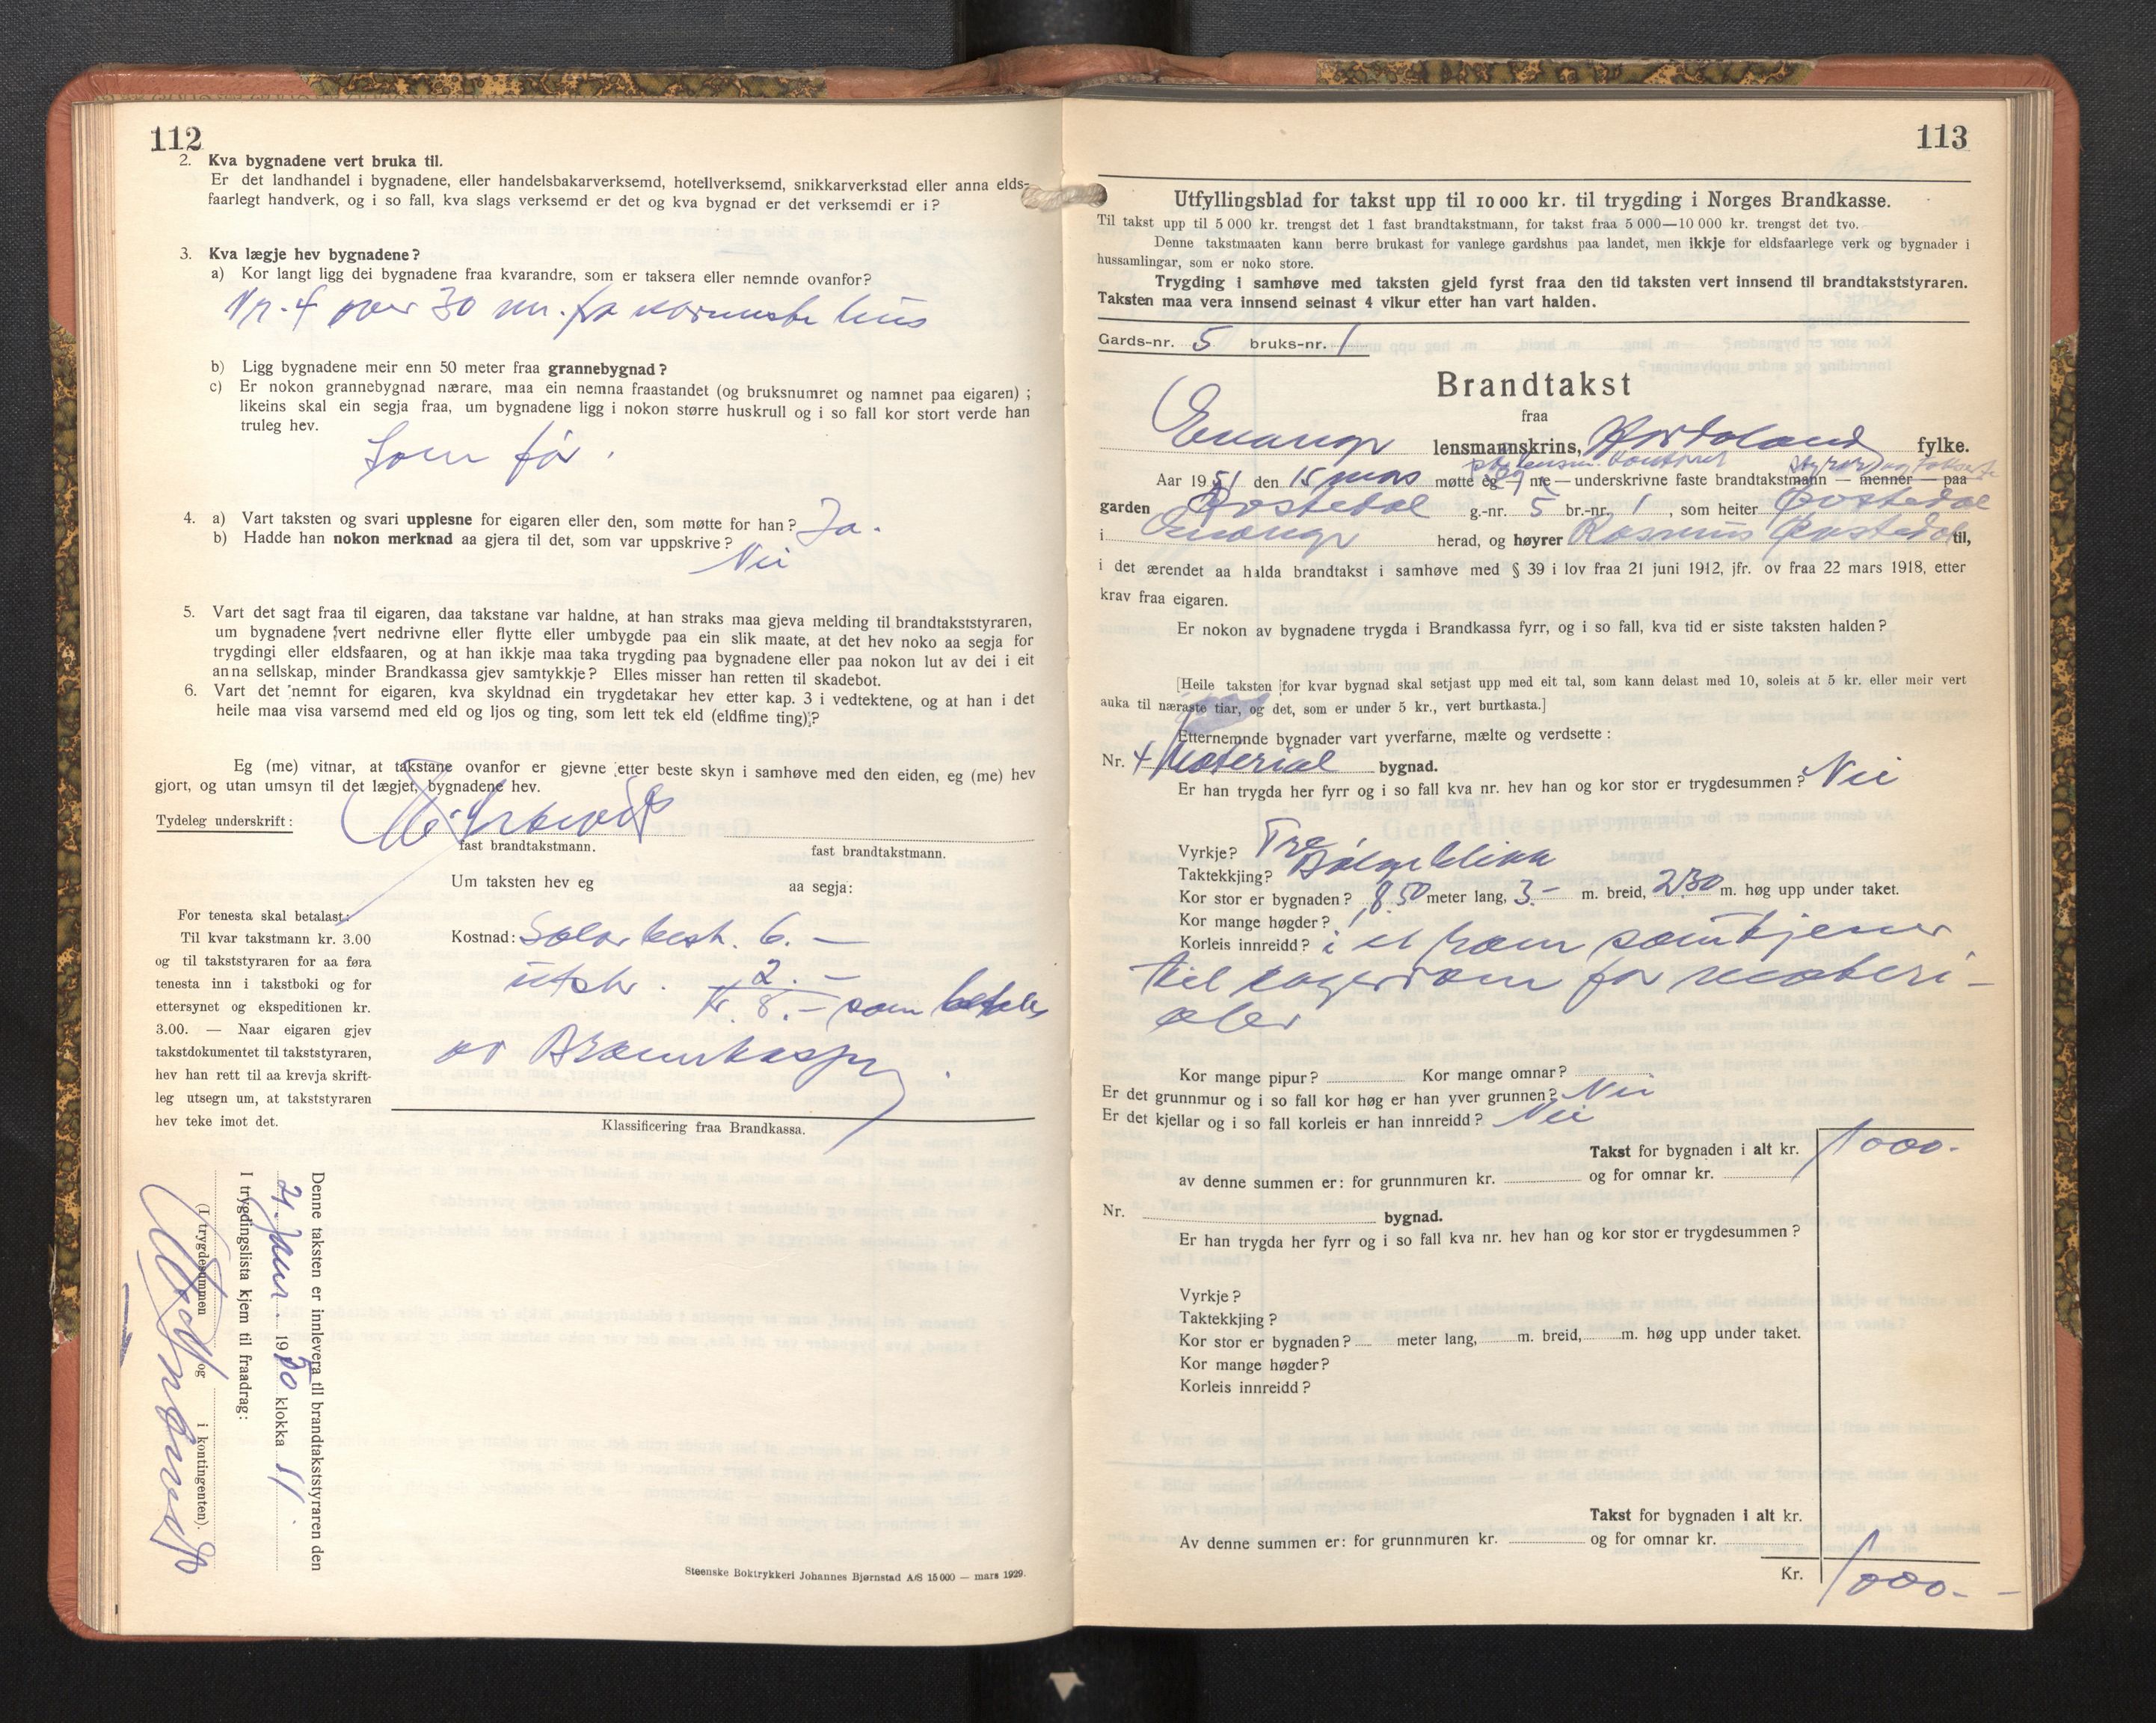 112
2. Kva bygnadene vert bruka til.
Er det landhandel i bygnadene, eller handelsbakarverksemd, hotellverksemd, snikkarverkstad eller anna elds-
faarlegt handverk, og i so fall, kva slags verksemd er det og kva bygnad er det verksemdi er i?
3. Kva lægje hev bygnadene?
a) Kor langt ligg dei bygnadene fraa kvarandre, som er taksera eller nemnde ovanfor?
Nr. 4 over 30 m. fra nærmeste hus
b) Ligg bygnadene meir enn 50 meter fraa grannebygnad?
c) Er nokon grannebygnad nærare, maa ein nemna fraastandet (og bruksnumret og namnet paa eigaren) ;
likeins skal ein segja fraa, um bygnadene ligg i nokon større huskrull og i so fall kor stort verde han
truleg hev.
Som før.
4. a) Vart taksten og svari upplesne for eigaren eller den, som møtte for han? Ja.
b) Hadde han nokon merknad aa gjera til det, som var uppskrive?
Nei
5. Vart det sagt fraa til eigaren, daa takstane var haldne, at han straks maa gjeva melding til brandtakststyraren,
um bygnadene vert nedrivne eller flytte eller umbygde paa ein slik maate, at det hev noko aa segja for
trygdingi eller eldsfaaren, og at han ikkje maa taka trygding paa bygnadene eller paa nokon lut av dei i eit
anna sellskap, minder Brandkassa gjev samtykkje? Elles misser han retten til skadebot.
6. Vart det nemnt for eigaren, kva skyldnad ein trygdetakar hev etter kap. 3 i vedtektene, og at han i det
heile maa visa varsemd med eld og ljos og ting, som lett tek eld (eldfime ting)?
Eg (me) vitnar, at takstane ovanfor er gjevne etter beste skyn i samhøve med den eiden, eg (me) hev
gjort, og utan umsyn til det lægjet, bygnadene hev.
Tydeleg underskrift:
fast brandtakstmann.
fast brandtakstmann.
Um taksten hev eg aa segja:
For tenesta skal betalast:
Til kvar takstmann kr. 3.00
og til takststyraren for aa føra
tenesta inn i takstboki og for
ettersynet og ekspeditionen kr.
3.00. — Naar eigaren gjev
takstdokumentet til takststyraren,
hev han rett til aa krevja skrift-
leg utsegn um, at takststyraren
hev teke imot det.
Kostnad: 6. —
utskr. 2. —
kr. 8. — som betales
av Brannkassen.
Klassificering fraa Brandkassa.
Denne taksten er innlevera til brandtakststyraren den
21. Janr. 1950 klokka 11.
I trygdingslista kjem til fraadrag:
(I trygdesummen og i kontingenten).
Steenske Boktrykkeri Johannes Bjørnstad A/S 15 000 — mars 1929.
113
Utfyllingsblad for takst upp til 10 000 kr. til trygding i Norges Brandkasse.
Til takst upp til 5 000 kr. trengst det 1 fast brandtakstmann, for takst fraa 5 000—10 000 kr. trengst det tvo.
Denne takstmaaten kann berre brukast for vanlege gardshus paa landet, men ikkje for eldsfaarlege verk og bygnader i
hussamlingar, som er noko store.
Trygding i samhøve med taksten gjeld fyrst fraa den tid taksten vert innsend til brandtakststyraren.
Taksten maa vera innsend seinast 4 vikur etter han vart halden.
Gards-nr. 5 bruks-nr. 1
Brandtakst
fraa
Etne lensmannskrins, Hordaland fylke.
Aar 1951 den 15 mars møtte eg — me — underskrivne faste brandtakstmann — menner — paa
garden g.-nr. 5 br.-nr. 1, som heiter
i herad, og høyrer Rasmus til,
i det ærendet aa halda brandtakst i samhøve med § 39 i lov fraa 21 juni 1912, jfr. ov fraa 22 mars 1918, etter
krav fraa eigaren.
Er nokon av bygnadene trygda i Brandkassa fyrr, og i so fall, kva tid er siste taksten halden?
[Heile taksten for kvar bygnad skal setjast upp med eit tal, som kann delast med 10, soleis at 5 kr. eller meir vert
auka til næraste tiar, og det, som er under 5 kr., vert burtkasta.]
Etternemnde bygnader vart yverfarne, mælte og verdsette :
Nr. 4 Material bygnad.
Er han trygda her fyrr og i so fall kva nr. hev han og kor stor er trygdesummen? Nei
Vyrkje? Tre
Taktekkjing? Bølgeblikk
Kor stor er bygnaden? 8.50 meter lang, 3.- m. breid, 2.30 m. høg upp under taket.
Kor mange høgder? 1
Korleis innreidd? i et rom som tjener
til lagerrom for materi-
aler
Kor mange pipur? Kor mange omnar?
Er det grunnmur og i so fall kor høg er han yver grunnen? Nei
Er det kjellar og i so fall korleis er han innreidd? Nei
Takst for bygnaden i alt kr. 1000.-
av denne summen er: for grunnmuren kr. og for omnar kr.
Nr. bygnad.
Er han trygda her fyrr og i so fall kva nr. hev han og kor stor er trygdesummen?
Vyrkje?
Taktekkjing?
Kor stor er bygnaden? meter lang, m. breid, m. høg upp under taket.
Kor mange høgder?
Korleis innreidd?
Takst for bygnaden i alt kr.
Av denne summen er: for grunnmuren kr. og for omnar kr.
Kr. 1000.-